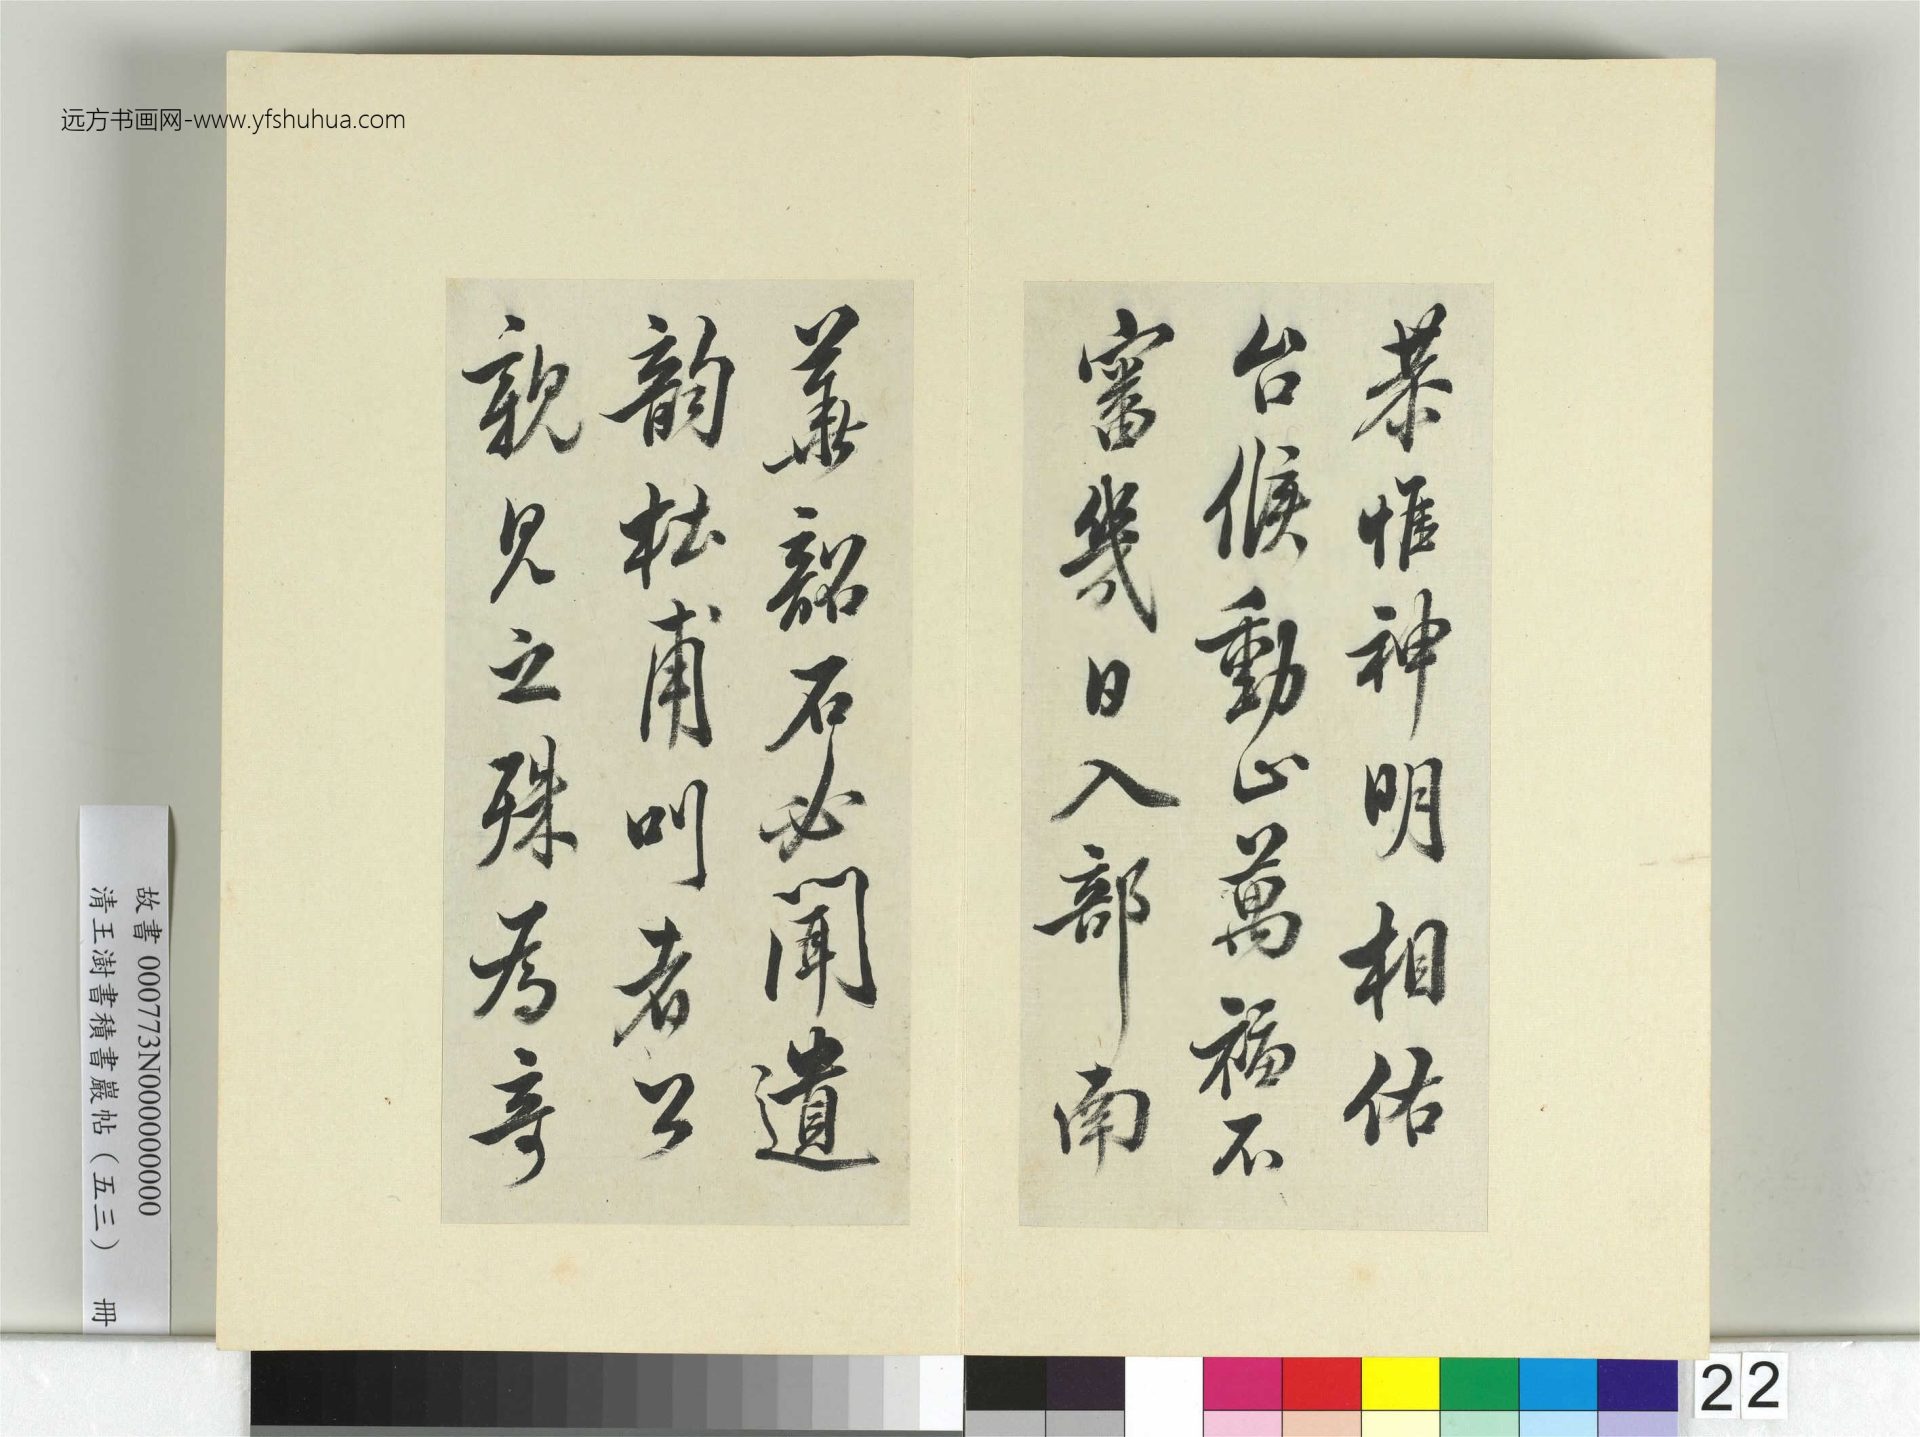 远方书画网-www.yfshuhua.com
恭惟神明相佑
台候動止萬福不
審幾日入部南
華韶石必聞遺
韵杜甫叫者公
親見之殊為奇
故書 000773N000000000
清王澍書積書巖帖（五三） 冊
22